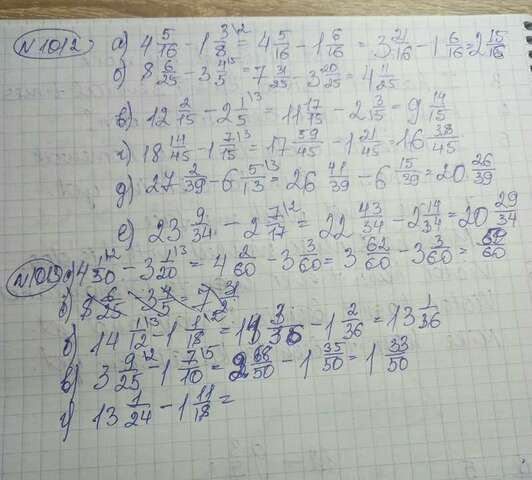 N 1012 а) 4 5/16 - 1 3/8 \2 = 4 5/16 - 1 6/16 = 3 21/16 - 1 6/16 = 2 15/16
б) 8 6/25 - 3 4/5 \5 = 7 31/25 - 3 20/25 = 4 11/25
в) 12 2/15 - 2 1/5 \3 = 11 17/15 - 2 3/15 = 9 14/15
г) 18 14/45 - 1 7/15 \3 = 17 59/45 - 1 21/45 = 16 38/45
д) 27 2/39 - 6 5/13 \3 = 26 41/39 - 6 15/39 = 20 26/39
е) 23 9/34 - 2 7/17 \2 = 22 43/34 - 2 14/34 = 20 29/34
N 1013 а) 4 1/30 \2 - 3 1/20 \3 = 4 2/60 - 3 3/60 = 3 62/60 - 3 3/60 = 59/60
б) 8 6/25 - 3 4/5 = 7 31
б) 14 1/12 \3 - 1 1/18 \2 = 14 3/36 - 1 2/36 = 13 1/36
в) 3 9/25 \2 - 1 7/10 \5 = 2 68/50 - 1 35/50 = 1 33/50
г) 13 1/24 - 1 11/18 =